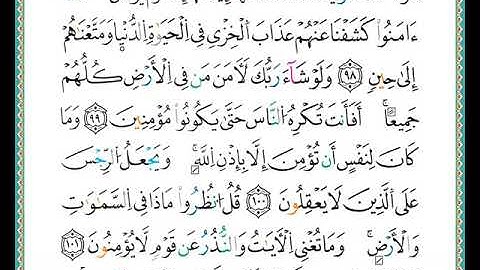 ءَامَنُوا۟ كَشَفْنَا عَنْهُمْ عَذَابَ ٱلْخِزْىِ فِى ٱلْحَيَوٰةِ ٱلدُّنْيَا وَمَتَّعْنَٰهُمْ
إِلَىٰ حِينٍ ٩٨ وَلَوْ شَآءَ رَبُّكَ لَـَٔامَنَ مَن فِى ٱلْأَرْضِ كُلُّهُمْ
جَمِيعًا ۚ أَفَأَنتَ تُكْرِهُ ٱلنَّاسَ حَتَّىٰ يَكُونُوا۟ مُؤْمِنِينَ ٩٩ وَمَا
كَانَ لِنَفْسٍ أَن تُؤْمِنَ إِلَّا بِإِذْنِ ٱللَّهِ ۚ وَيَجْعَلُ ٱلرِّجْسَ
عَلَى ٱلَّذِينَ لَا يَعْقِلُونَ ١٠٠ قُلِ ٱنظُرُوا۟ مَاذَا فِى ٱلسَّمَٰوَٰتِ
وَٱلْأَرْضِ ۚ وَمَا تُغْنِى ٱلْـَٔايَٰتُ وَٱلنُّذُرُ عَن قَوْمٍ لَّا يُؤْمِنُونَ ١٠١